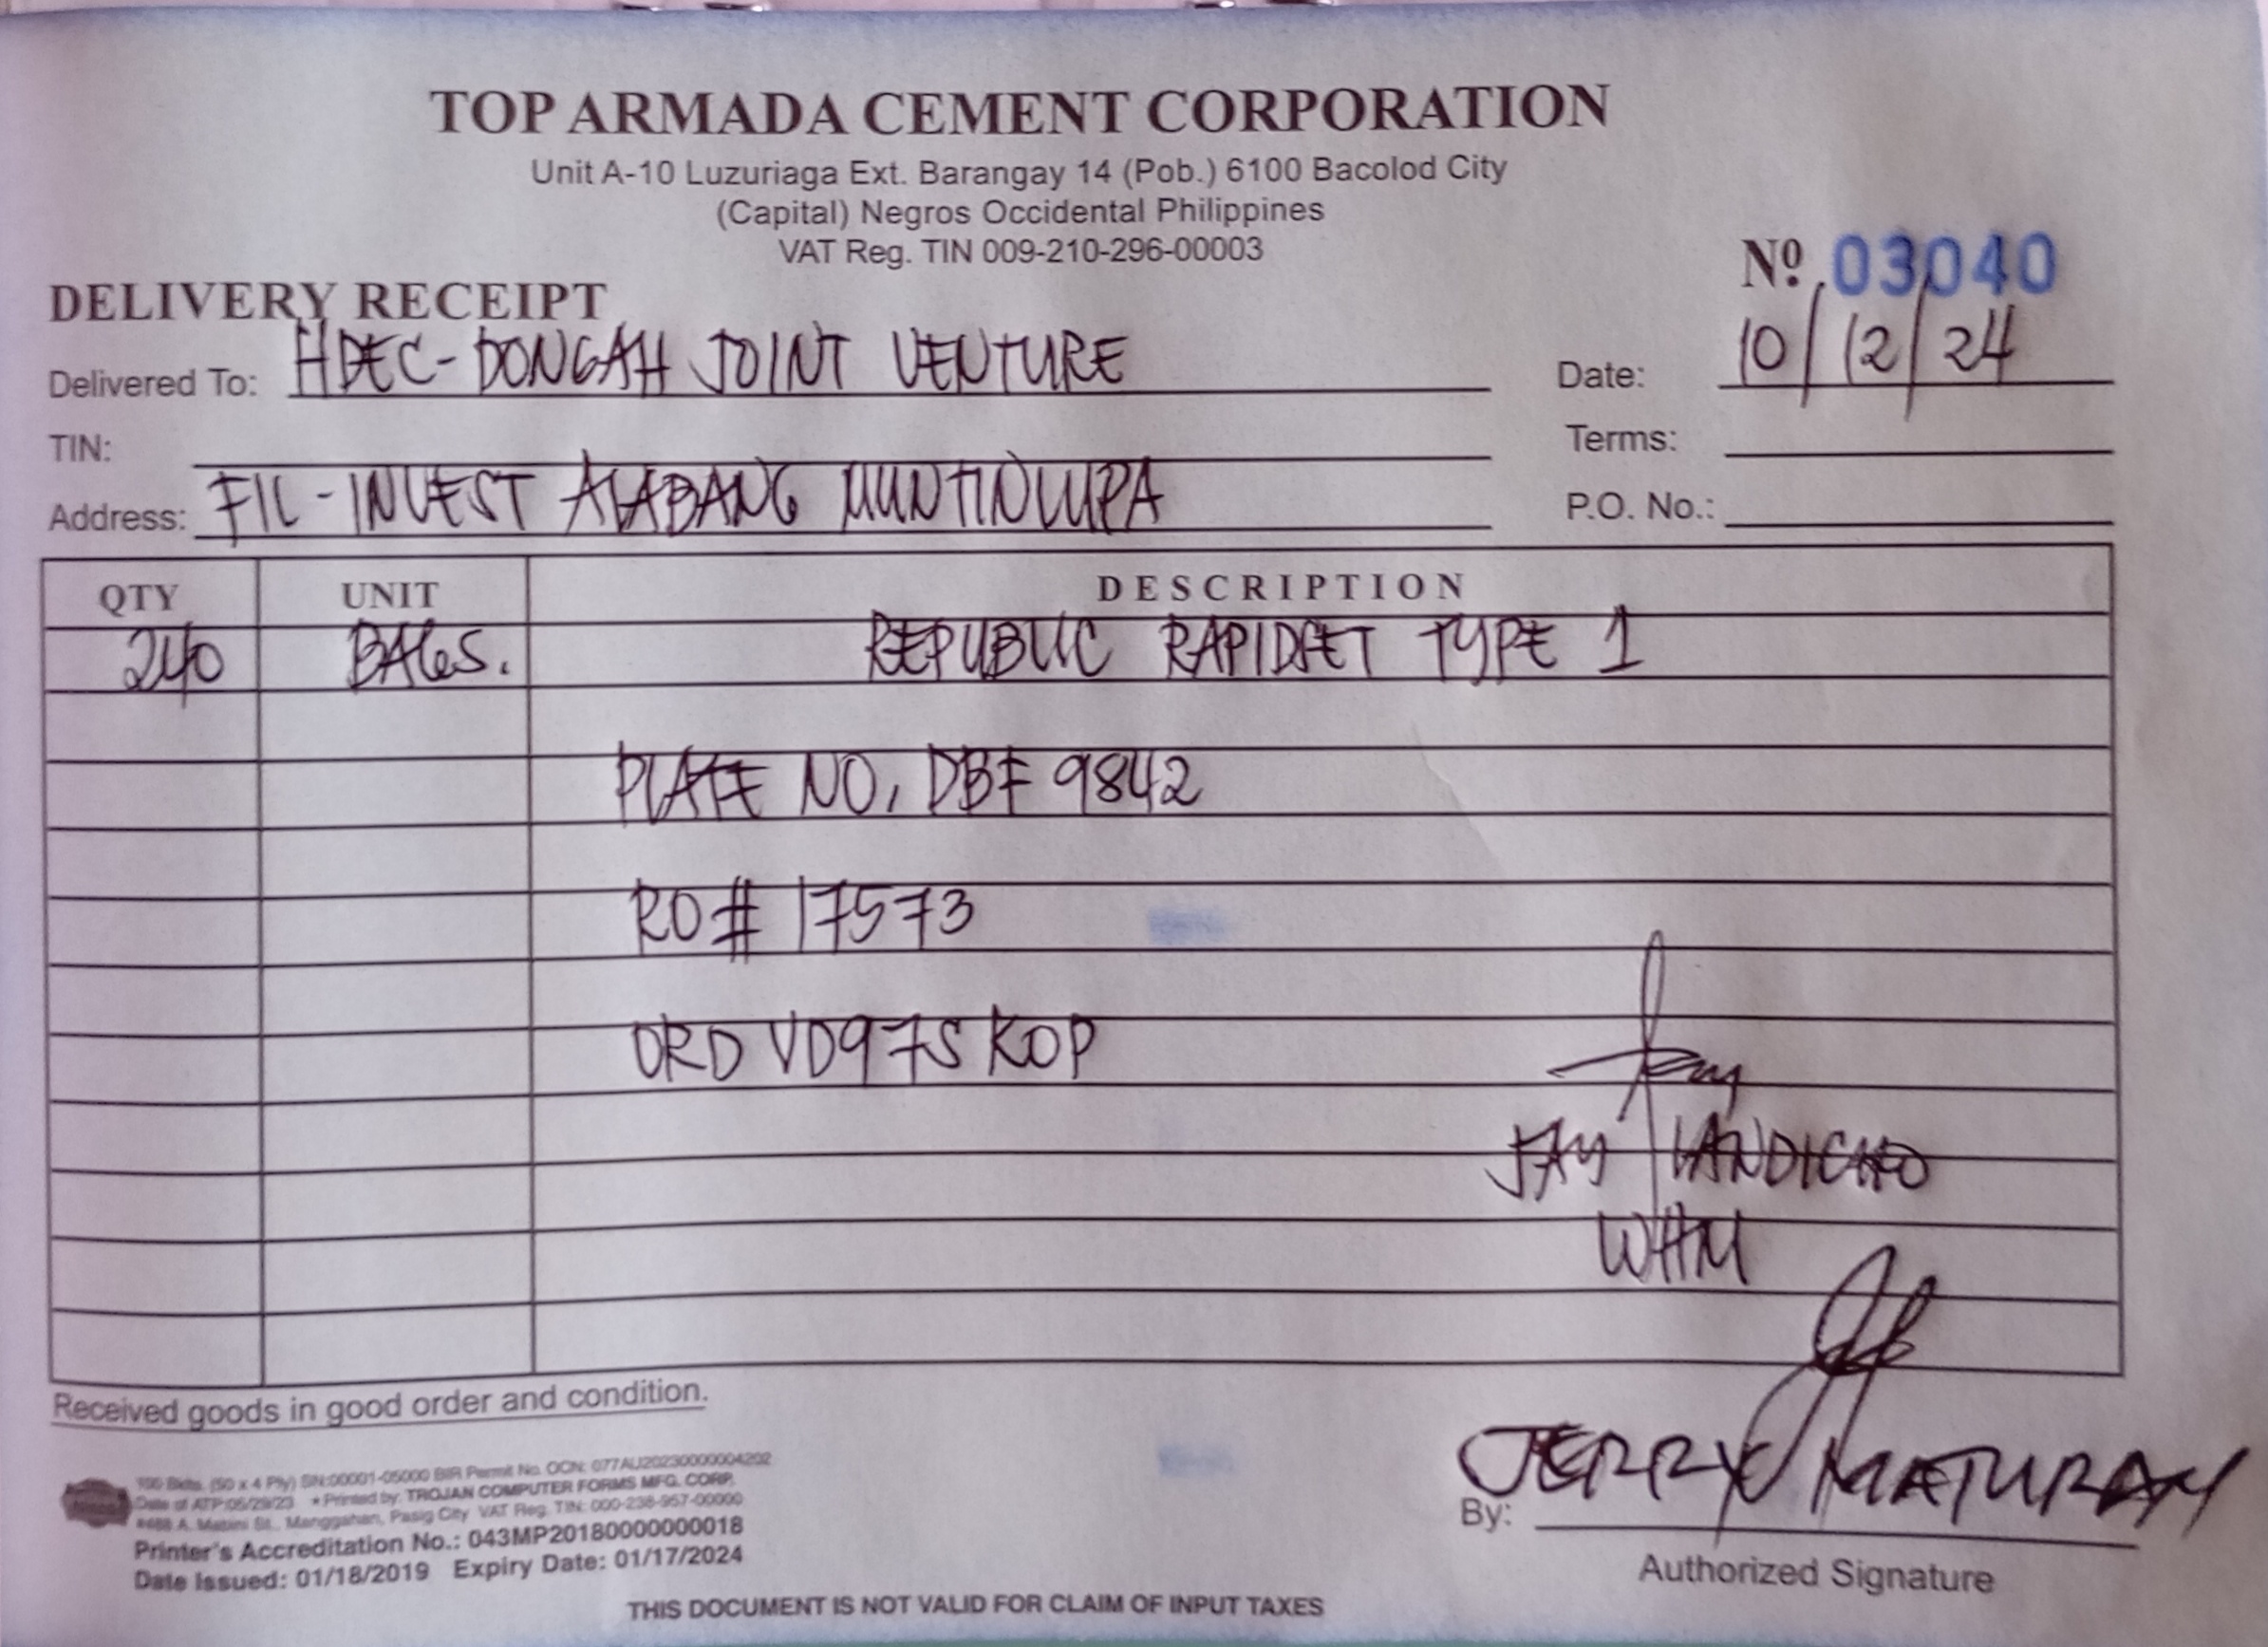 TOP ARMADA CEMENT CORPORATION
Unit A-10 Luzuriaga Ext. Barangay 14 (Pob.) 6100 Bacolod City
(Capital) Negros Occidental Philippines
VAT Reg. TIN 009-210-296-00003
Nº 03040
DELIVERY RECEIPT
Delivered To: HDEC-DONGAH JOINT VENTURE
Date: 10/12/24
TIN:
Terms:
Address: FIL-INVEST ALABANG MUNTINLUPA
P.O. No.:
QTY UNIT DESCRIPTION
240 BAGS. REPUBLIC RAPIDSET TYPE 1
PLATE NO. DBF 9842
RO# 17573
ORD VD97S KOP
JAY LANDICHO
WHM
Received goods in good order and condition.
100 Bklts. (50 x 4 Ply) SN:00001-05000 BIR Permit No. OCN: 077AU20230000004202
Date of ATP:05/29/23 • Printed by: TROJAN COMPUTER FORMS MFG. CORP.
#488 A. Mabini St., Manggahan, Pasig City VAT Reg. TIN: 000-238-957-00000
Printer's Accreditation No.: 043MP20180000000018
Date Issued: 01/18/2019 Expiry Date: 01/17/2024
JERRY MATURAN
By:
Authorized Signature
THIS DOCUMENT IS NOT VALID FOR CLAIM OF INPUT TAXES